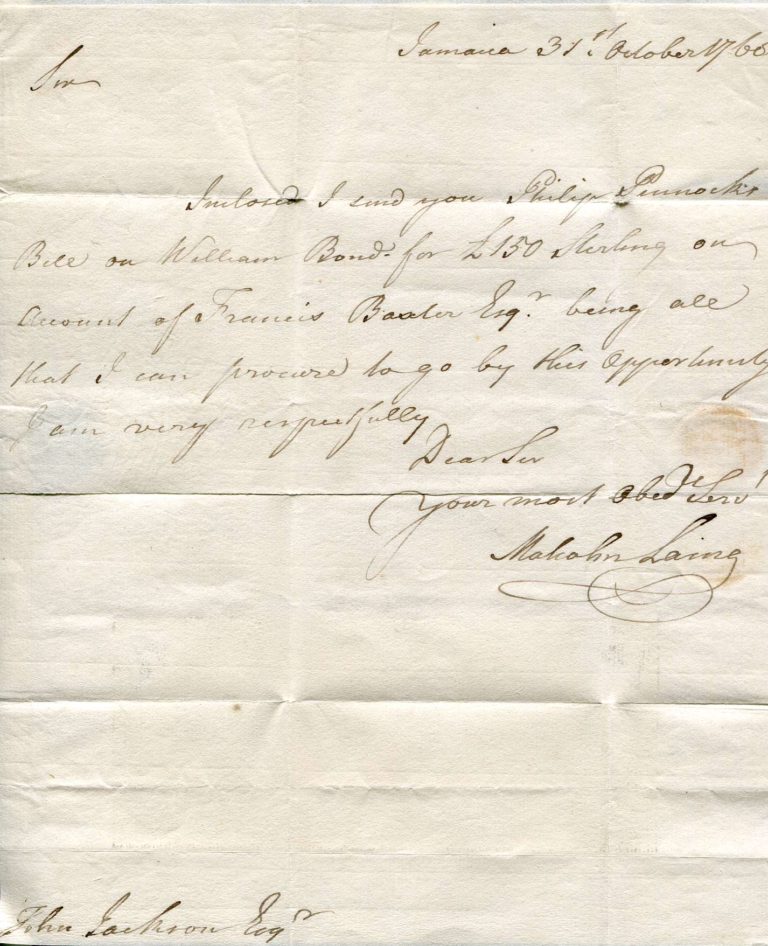 Jamaica 31st. October 1768
Sir
Inclosed I send you Philip Pinnock's
Bill on William Bond. for £150 Sterling on
Account of Francis Baxter Esqr. being all
that I can procure to go by this Opportunity
I am very respectfully
Dear Sir
Your most Obedt Servt
Malcolm Laing
John Jackson Esqr